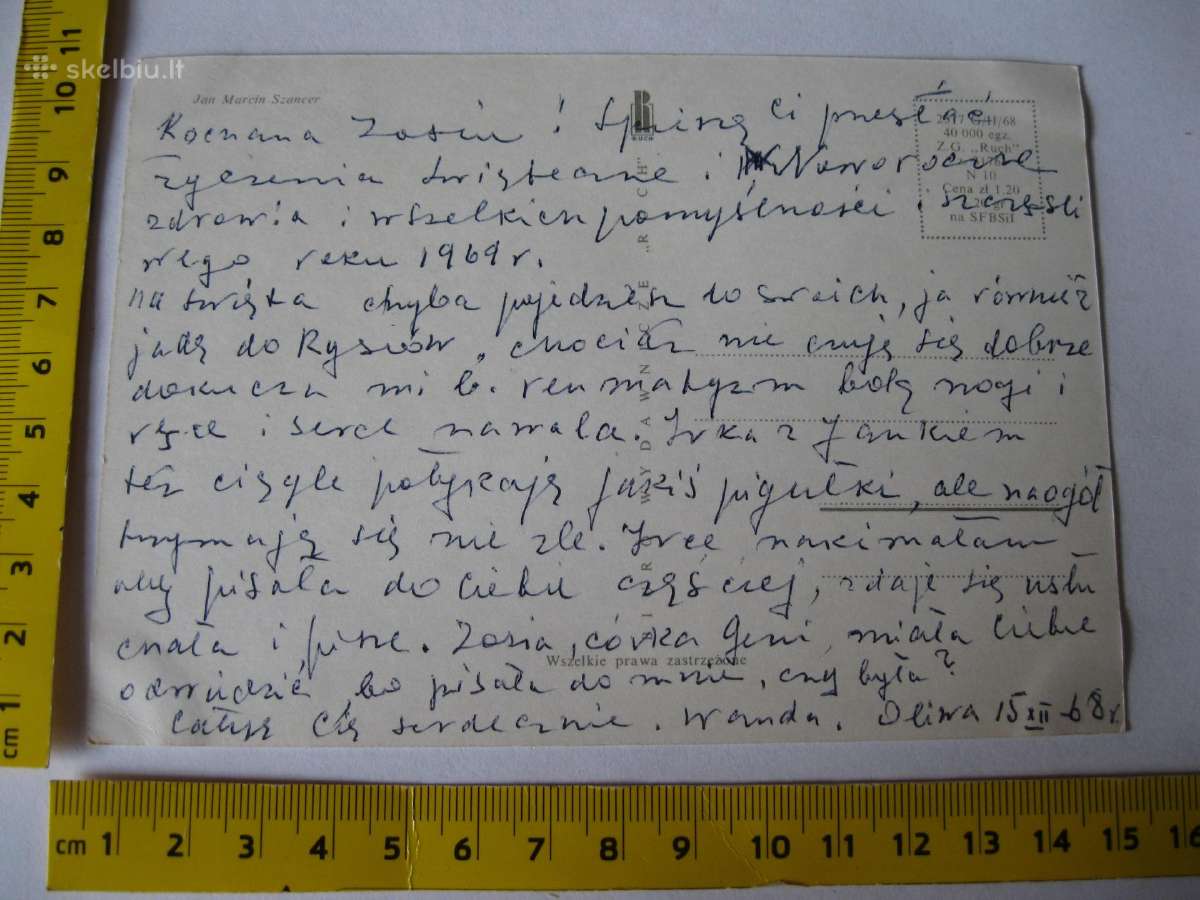 skelbiu.lt
Jan Marcin Szancer
RUCH
2917 G/II/68
40 000 egz.
Z.G. „Ruch"
N 10
Cena zł 1.20
na SFBSiI
BIURO WYDAWNICZE „RUCH"
Kochana Zosiu! Spieszę Ci przesłać
życzenia świąteczne i Noworoczne
zdrowia i wszelkich pomyślności i szczęśli
wego roku 1969 r.
na święta chyba pojedziesz do swoich, ja również
jadę do Rysiów, chociaż nie czuję się dobrze
dokucza mi b. reumatyzm bolą nogi i
ręce i serce nawala. Irka z Jankiem
też ciągle połykają jakiś pigułki, ale naogół
trzymają się nie źle. Irce nakiwałam
aby pisała do Ciebie częściej, zdaje się usłu
chała i pisze. Zosia, córka Geni, miała Ciebie
odwiedzić bo pisała do mnie, czy była?
Całuję Cię serdecznie. Wanda. Oliwa 15 XII-68 r.
Wszelkie prawa zastrzeżone
cm 1 2 3 4 5 6 7 8 9 10 11
cm 1 2 3 4 5 6 7 8 9 10 11 12 13 14 15 16